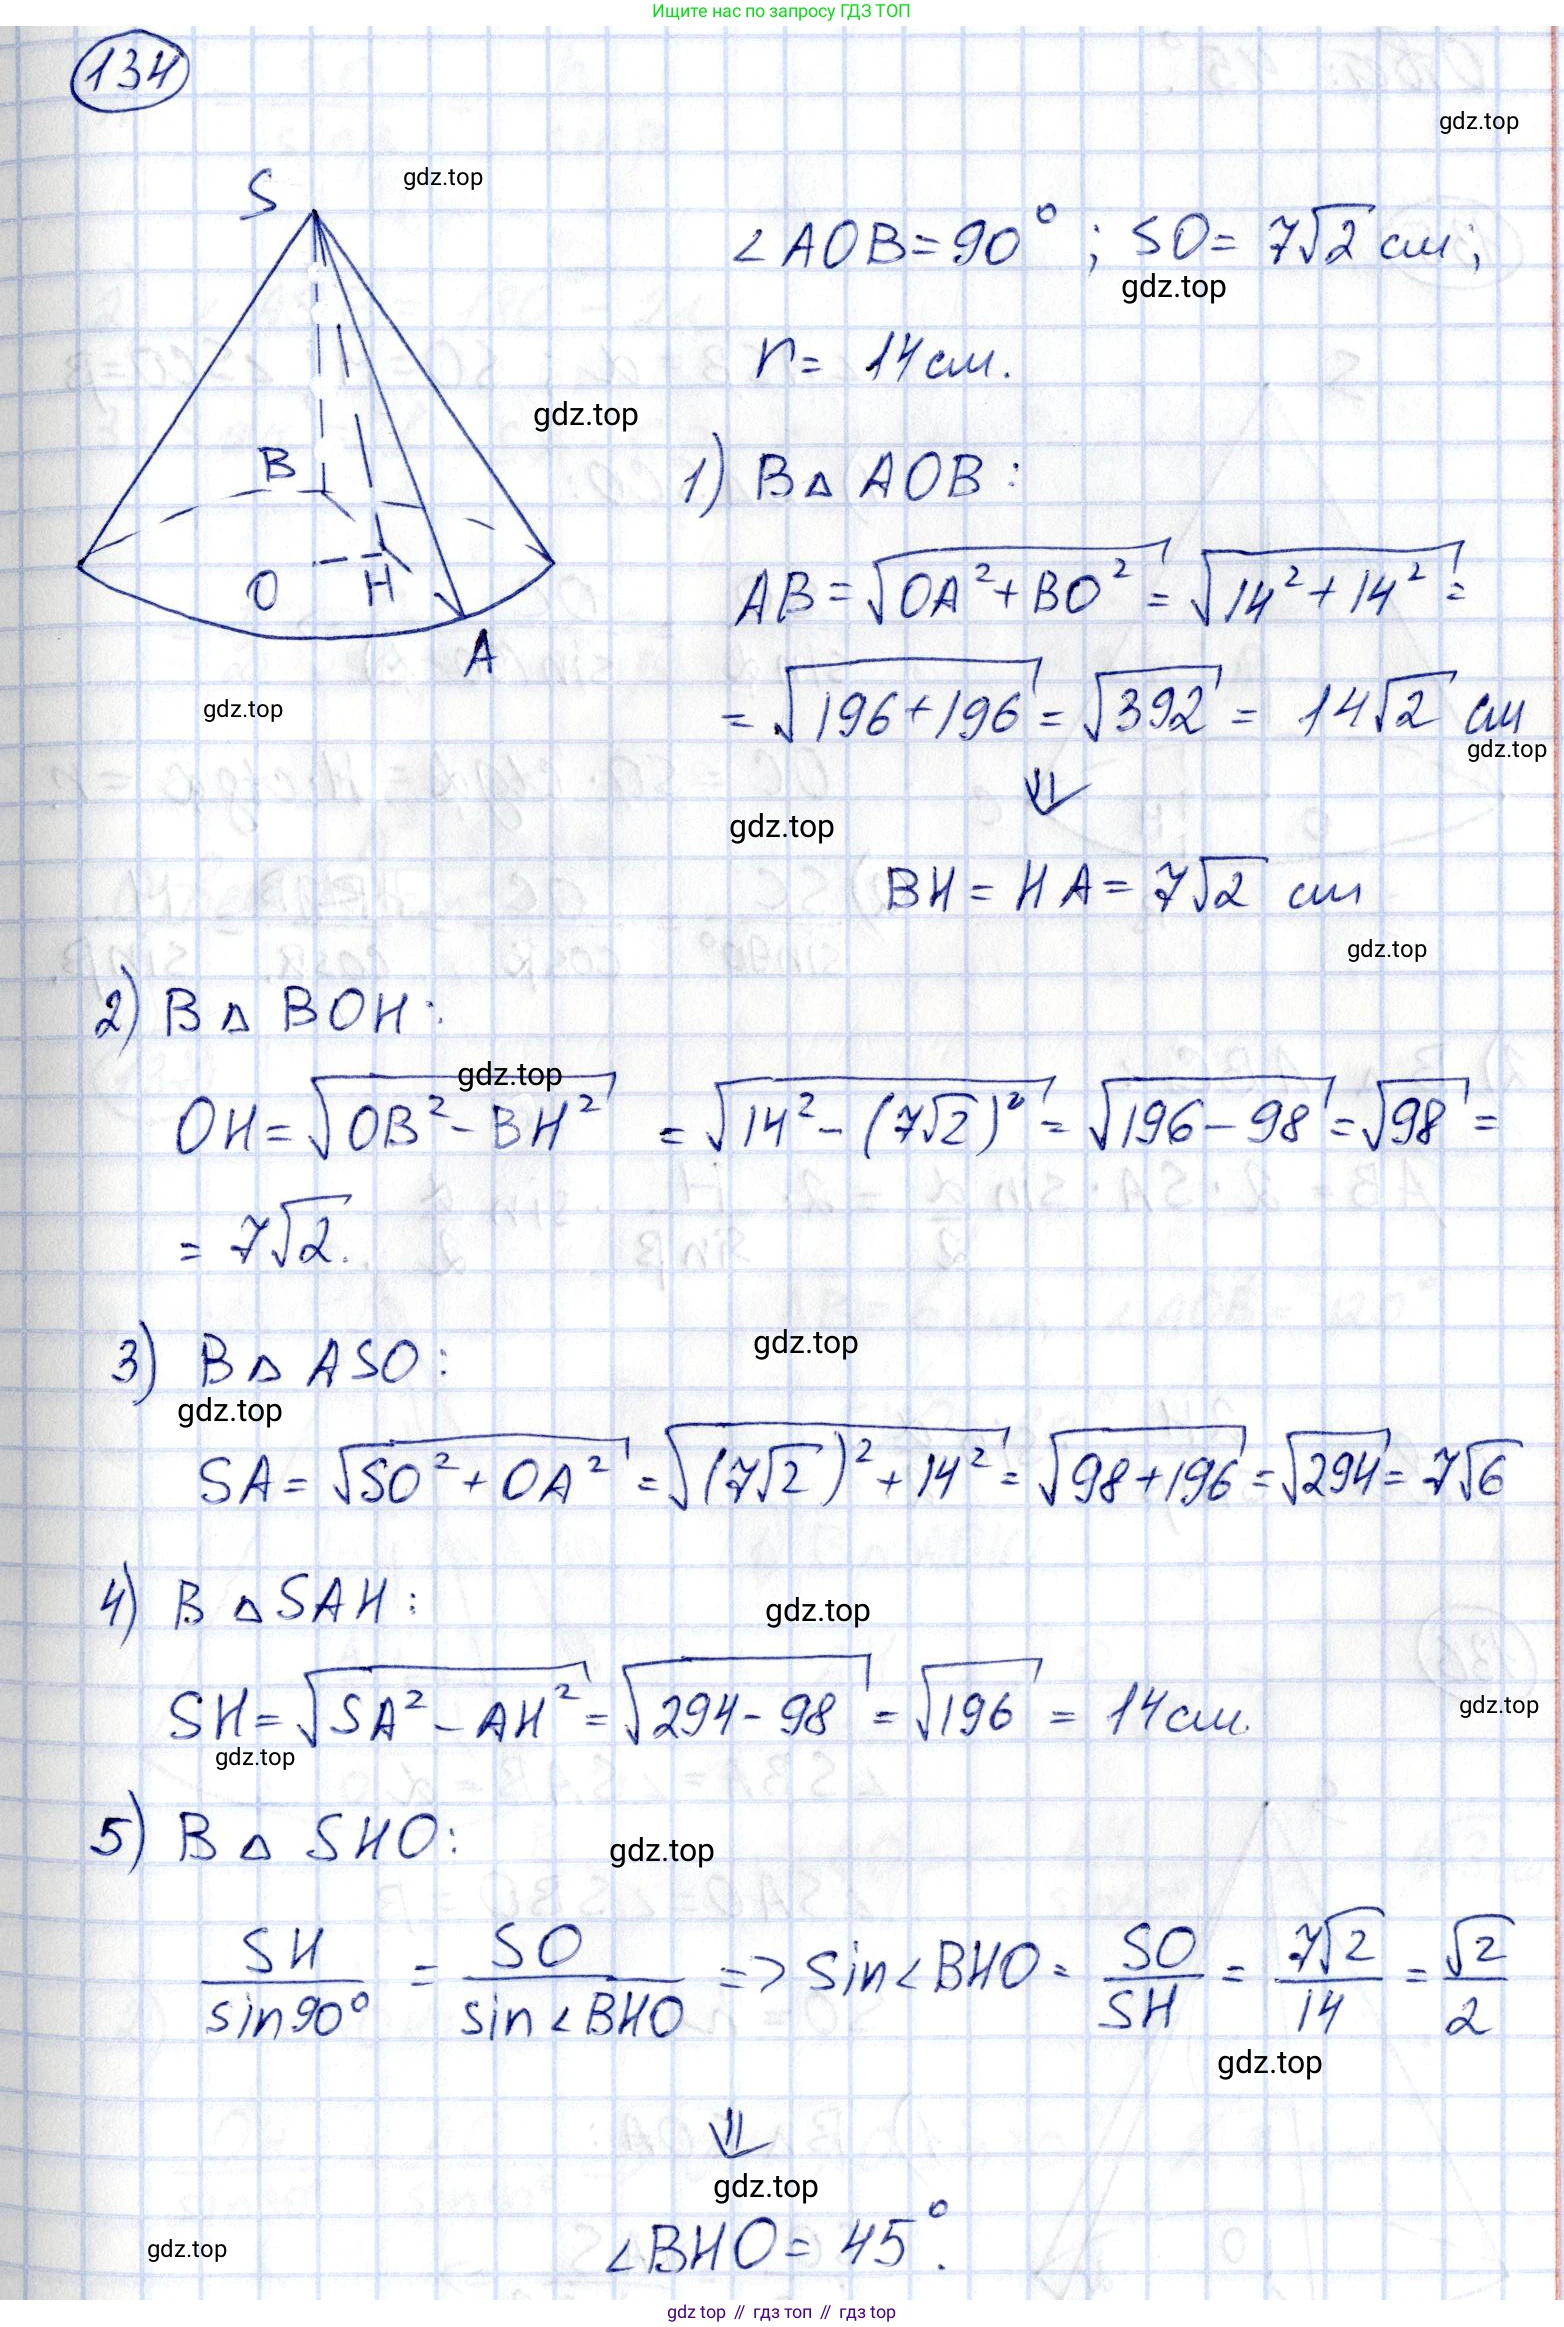 Ищите нас по запросу ГДЗ ТОП
134
gdz.top
gdz.top
S
∠AOB=90°; SO=7√2 см;
gdz.top
r= 14 см.
gdz.top
B
1) В△ AOB:
O
H
AB=√(OA²+BO²)=√(14²+14²)=
A
gdz.top
=√(196+196)=√392= 14√2 см
gdz.top
⇓
gdz.top
BH=HA=7√2 см
gdz.top
2) В△ BOH:
gdz.top
OH=√(OB²-BH²) =√(14²-(7√2)²)=√(196-98)=√98=
= 7√2.
gdz.top
3) В△ ASO:
gdz.top
SA=√(SO²+OA²)=√((7√2)²+14²)=√(98+196)=√294=7√6
4) В △SAH:
gdz.top
SH=√(SA²-AH²)=√(294-98)=√196= 14см.
gdz.top
gdz.top
5) В△ SHO:
gdz.top
SH/sin90° = SO/sin∠BHO => sin∠BHO= SO/SH = 7√2/14 = √2/2
gdz.top
⇓
gdz.top
∠BHO= 45°.
gdz.top
gdz top // гдз топ // гдз top